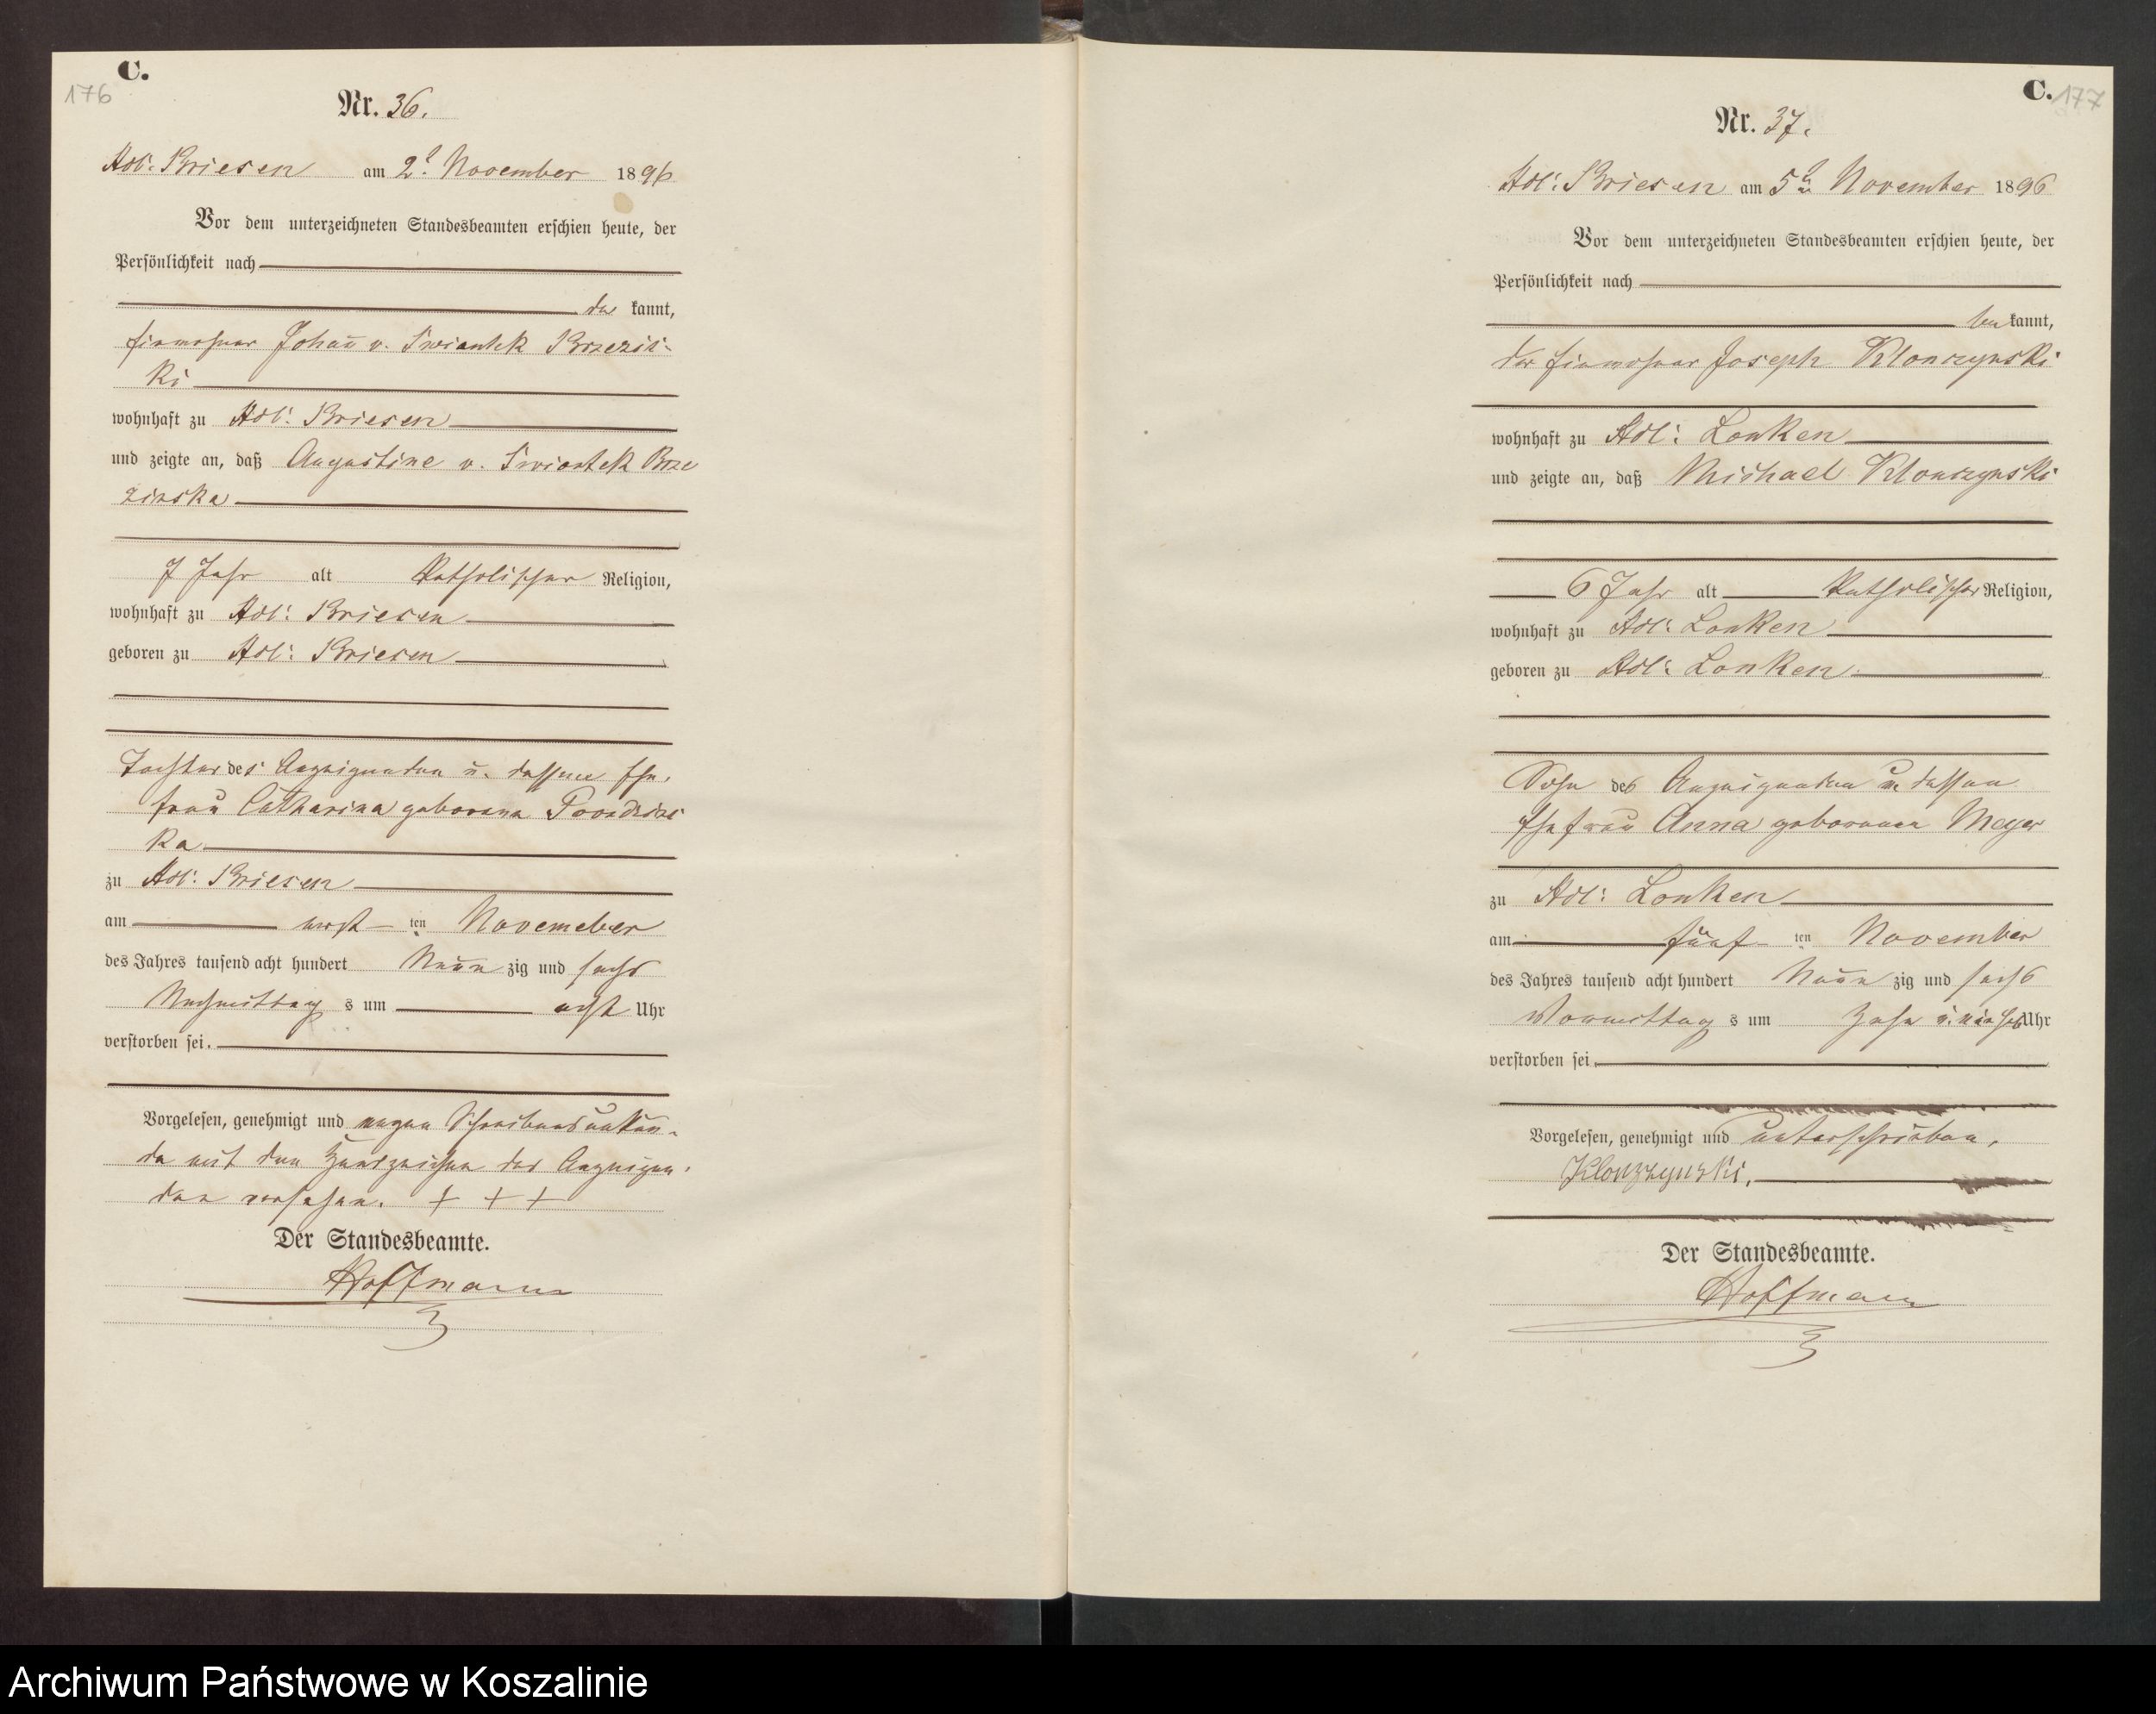 C.
176
Nr. 36.
Adl: Briesen am 2t November 1896
Vor dem unterzeichneten Standesbeamten erschien heute, der
Persönlichkeit nach
kannt,
Johan v. Swiantek Brzezis-
ki
wohnhaft zu Adl: Briesen
und zeigte an, daß Augustine v. Swiantek Brze
zinska
7 Jahr alt Katholischer Religion,
wohnhaft zu Adl: Briesen
geboren zu Adl: Briesen
Tochter des Anzeigenden u. dessen Ehe.
frau Catharina geborene
ka
zu Adl: Briesen
am erst ten Novemeber
des Jahres tausend acht hundert Neun zig und sechs
Nachmittag s um acht Uhr
verstorben sei.
Vorgelesen, genehmigt und wegen Schreibensunkun-
de mit den Handzeichen des Anzeigen.
den versehen. + + +
Der Standesbeamte.
Hoffmann
C.
177
Nr. 37.
Adl: Briesen am 5ten November 1896
Vor dem unterzeichneten Standesbeamten erschien heute, der
Persönlichkeit nach
be kannt,
der Einwohner Joseph Klonczynski
wohnhaft zu Adl: Lonken
und zeigte an, daß Michael Klonczynski
6 Jahr alt Katholischer Religion,
wohnhaft zu Adl: Lonken
geboren zu Adl: Lonken
Sohn des Anzeigenden u. dessen
Ehefrau Anna geborenen Meyer
zu Adl: Lonken
am fünf ten November
des Jahres tausend acht hundert Neun zig und sechs
Vormittag s um Uhr
verstorben sei.
Vorgelesen, genehmigt und unterschrieben.
Klonczynski.
Der Standesbeamte.
Hoffmann
Archiwum Państwowe w Koszalinie